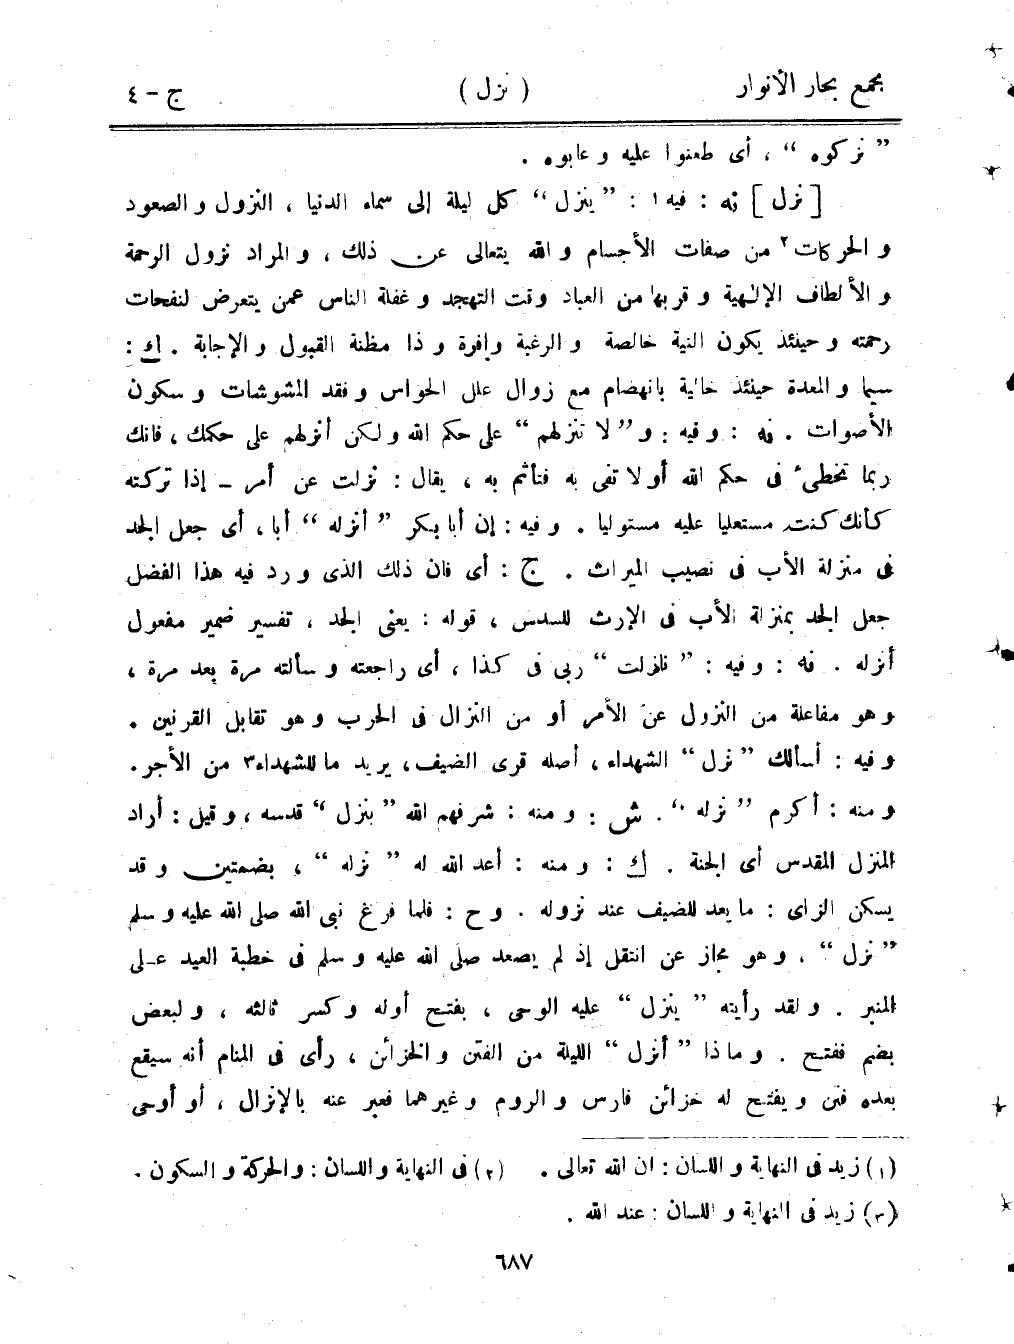 مجمع بحار الأنوار ( نزل ) ج - ٤
” نزكوه “ ، أى طعنوا عليه و عابوه .
[ نزل ] نه : فيه ١ : ” ينزل “ كل ليلة إلى سماء الدنيا ، النزول و الصعود
و الحركات ٢ من صفات الأجسام و الله يتعالى عن ذلك ، و المراد نزول الرحمة
و الألطاف الإلٰهية و قربها من العباد وقت التهجد و غفلة الناس عمن يتعرض لنفحات
رحمته و حينئذ يكون النية خالصة و الرغبة وافرة و ذا مظنة القبول و الإجابة . ك :
سيما و المعدة حينئذ خالية بانهضام مع زوال علل الحواس و فقد المشوشات و سكون
الأصوات . نه : و فيه : و ” لا تنزلهم “ على حكم الله و لكن أنزلهم على حكمك ، فانك
ربما تخطىء فى حكم الله أو لا تفى به فتأثم به ، يقال : نزلت عن أمر – إذا تركته
كأنك كنت مستعليا عليه مستوليا . و فيه : إن أبا بكر ” أنزله “ أبا ، أى جعل الجد
فى منزلة الأب فى نصيب الميراث . ج : أى فان ذلك الذى و رد فيه هذا الفضل
جعل الجد بمنزلة الأب فى الإرث للسدس ، قوله : يعنى الجد ، تفسير ضمير مفعول
أنزله . نه : و فيه : ” نازلت “ ربى فى كذا ، أى راجعته و سألته مرة بعد مرة ،
و هو مفاعلة من النزول عن الأمر أو من النزال فى الحرب و هو تقابل القرنين .
و فيه : أسألك ” نزل “ الشهداء ، أصله قرى الضيف ، يريد ما للشهداء٣ من الأجر .
و منه : أكرم ” نزله “ . ش : و منه : شرفهم الله ” بنزل “ قدسه ، و قيل : أراد
المنزل المقدس أى الجنة . ك : و منه : أعد الله له ” نزله “ ، بضمتين و قد
يسكن الزاى : ما يعد للضيف عند نزوله . و ح : فلما فرغ نبى الله صلى الله عليه و سلم
” نزل “ ، و هو مجاز عن انتقل إذ لم يصعد صلى الله عليه و سلم فى خطبة العيد على
المنبر . و لقد رأيته ” ينزل “ عليه الوحى ، بفتح أوله و كسر ثالثه ، و لبعض
بضم ففتح . و ما ذا ” أنزل “ الليلة من الفتن و الخزائن ، رأى فى المنام أنه سيقع
بعده فتن و يفتح له خزائن فارس و الروم و غيرهما فعبر عنه بالإنزال ، أو أوحى
(١) زيد فى النهاية و اللسان : ان الله تعالى . (٢) فى النهاية و اللسان : و الحركة و السكون .
(٣) زيد فى النهاية و اللسان : عند الله .
٦٨٧